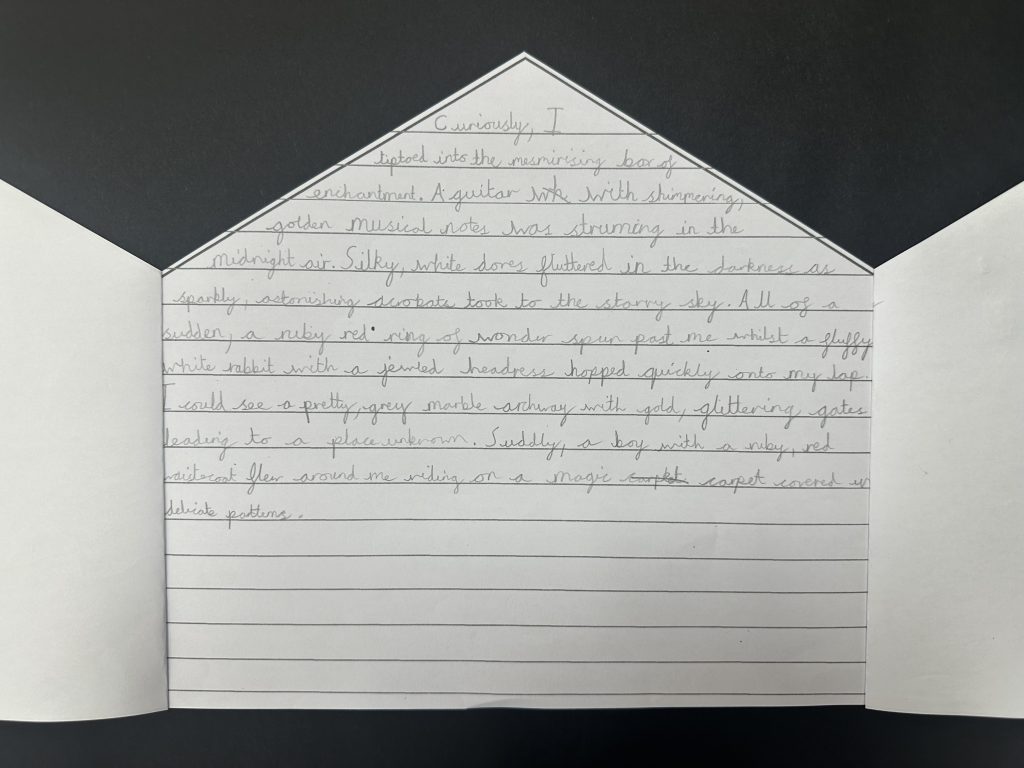 Curiously, I
tiptoed into the mesmirising box of
enchantment. A guitar with shimmering,
golden musical notes was struming in the
midnight air. Silky, white doves fluttered in the darkness as
sparkly, astonishing acrobats took to the starry sky. All of a
sudden, a ruby red ring of wonder spun past me whilst a fluffy
white rabbit with a jewled headress hopped quickly onto my lap.
I could see a pretty, grey marble archway with gold, glittering, gates
leading to a place unknown. Suddly, a boy with a ruby, red
waistcoat flew around me riding on a magic carpet carpet covered in
delicate patterns.